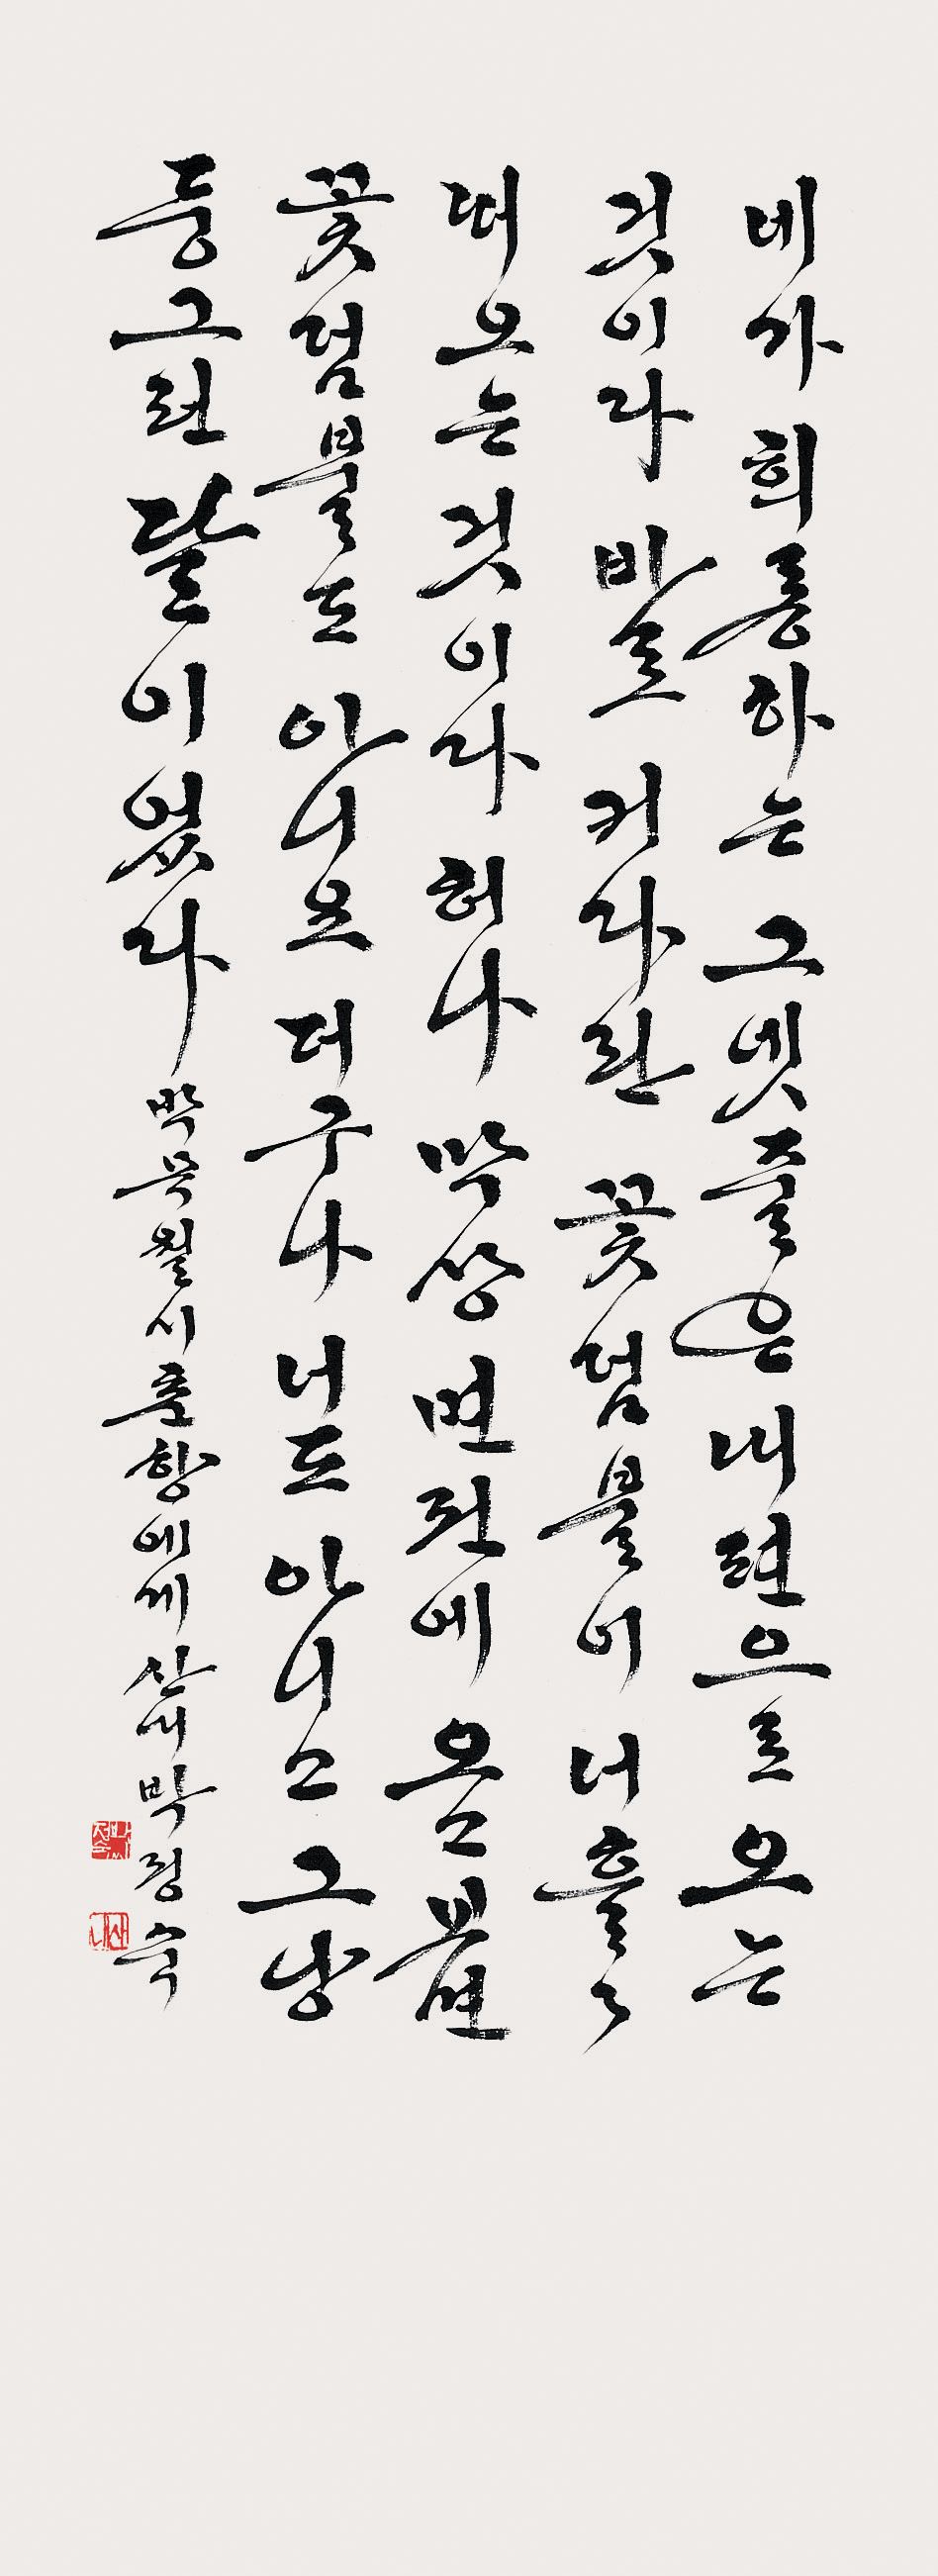 네가 희롱하는 그넷줄은 내편으로 오는
것이다 바로 커다란 꽃덤불이 너훌〃
떠오는 것이다 허나 막상 면전에 오고 보면
꽃덤불도 아니요 더구나 너도 아니고 그냥
둥그런 달이었다 박목월 시 춘향에게 산내 박정숙